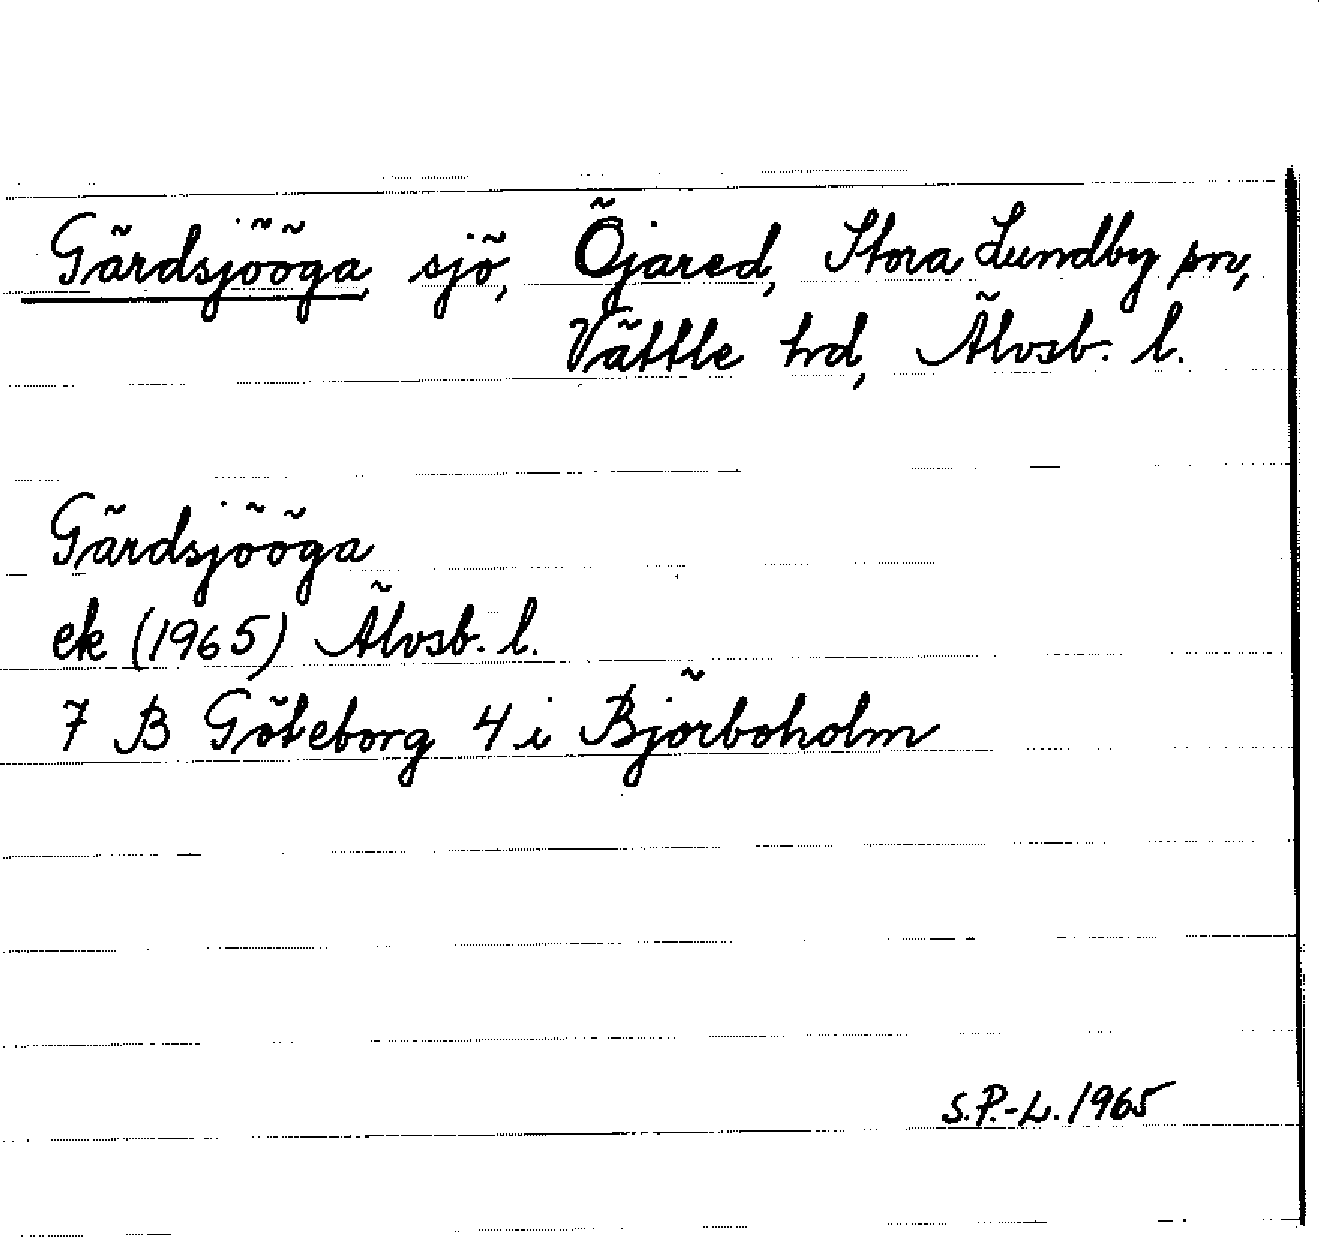 Gärdsjööga, sjö, Öjared, Stora Lundby sn,
Vättle hd, Älvsb. l.
Gärdsjööga
ek (1965) Älvsb. l.
7 B Göteborg 4 i Björboholm
S.P.-L. 1965